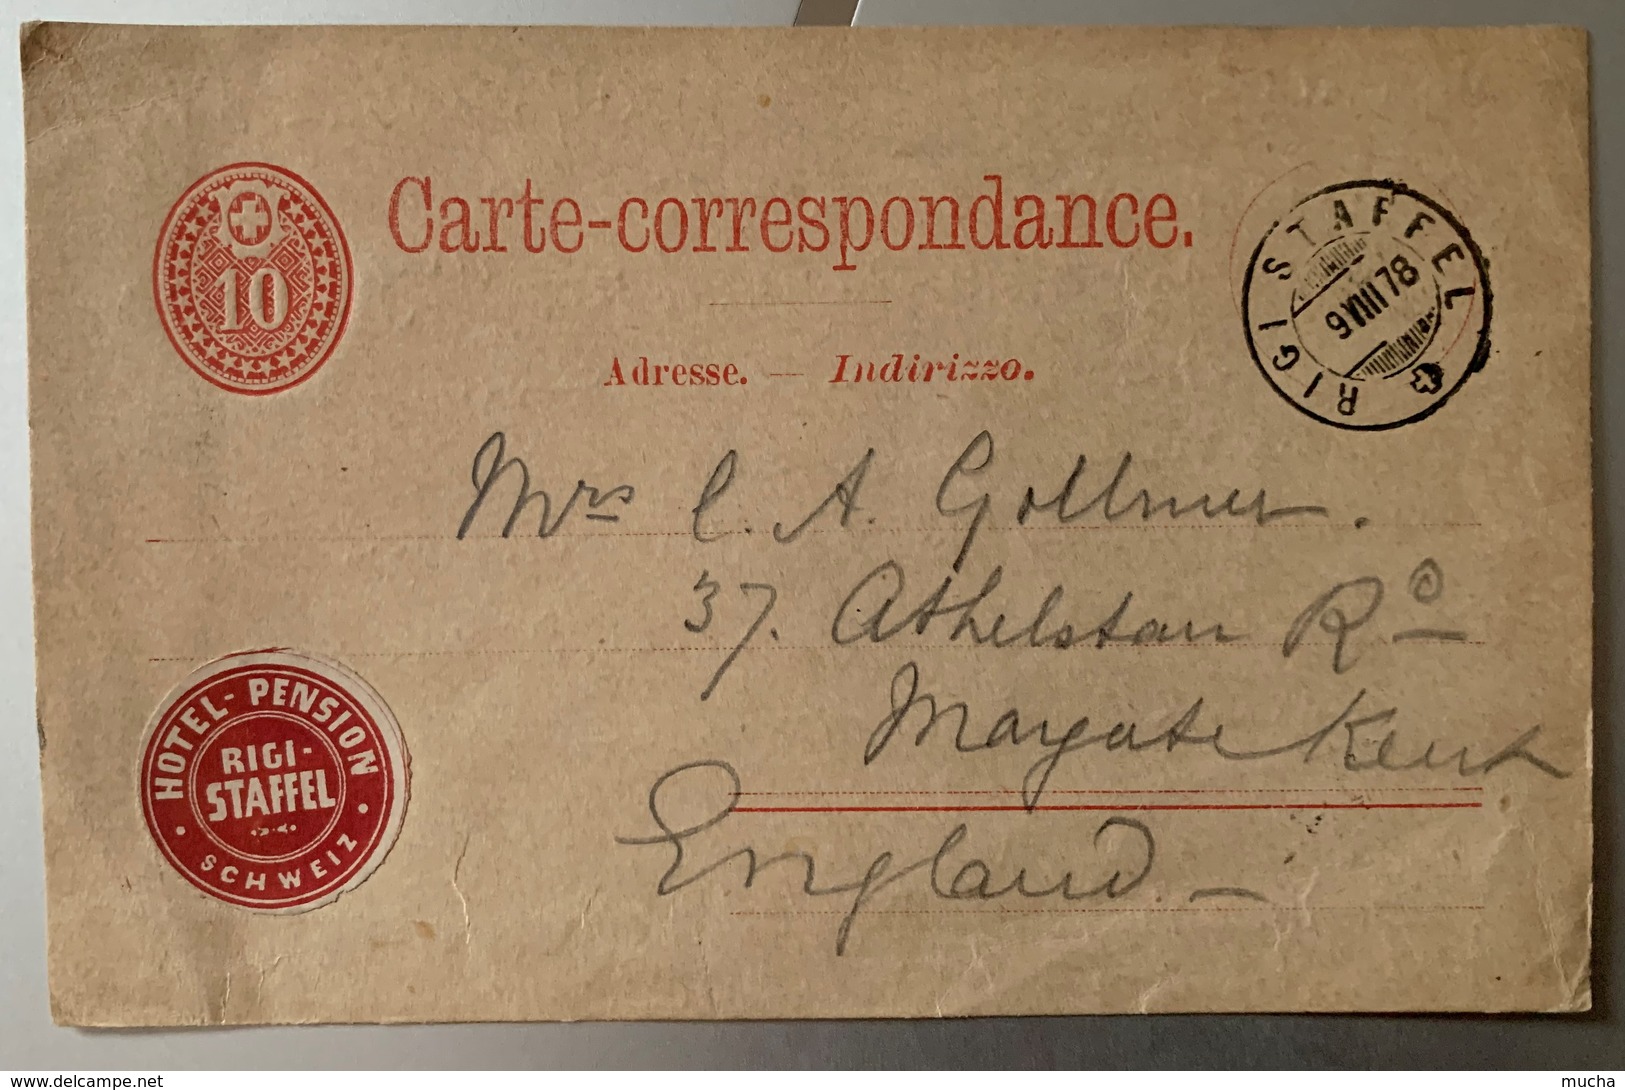 10
Carte-correspondance.
RIGI STAFFEL
9 VIII 78
Adresse. — Indirizzo.
Mrs C. A. Gollmer.
37. Athelstan Rd
Margate Kent
England. —
HOTEL-PENSION
RIGI-
STAFFEL
SCHWEIZ
www.delcampe.net
mucha